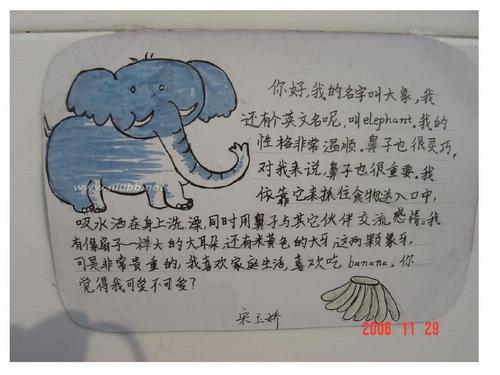 你好,我的名字叫大象,我
还有个英文名呢,叫elephant.我的
性格非常温顺。鼻子也很灵巧,
对我来说,鼻子也很重要。我
依靠它来抓住食物送入口中,
吸水洒在身上洗澡,同时用鼻子与其它伙伴交流感情。我
有像扇子一样大的大耳朵,还有米黄色的大牙,这两颗象牙,
可是非常贵重的,我喜欢家庭生活,喜欢吃banana.你
觉得我可爱不可爱?
宋玉娇
www.niubb.net
2006 11 29